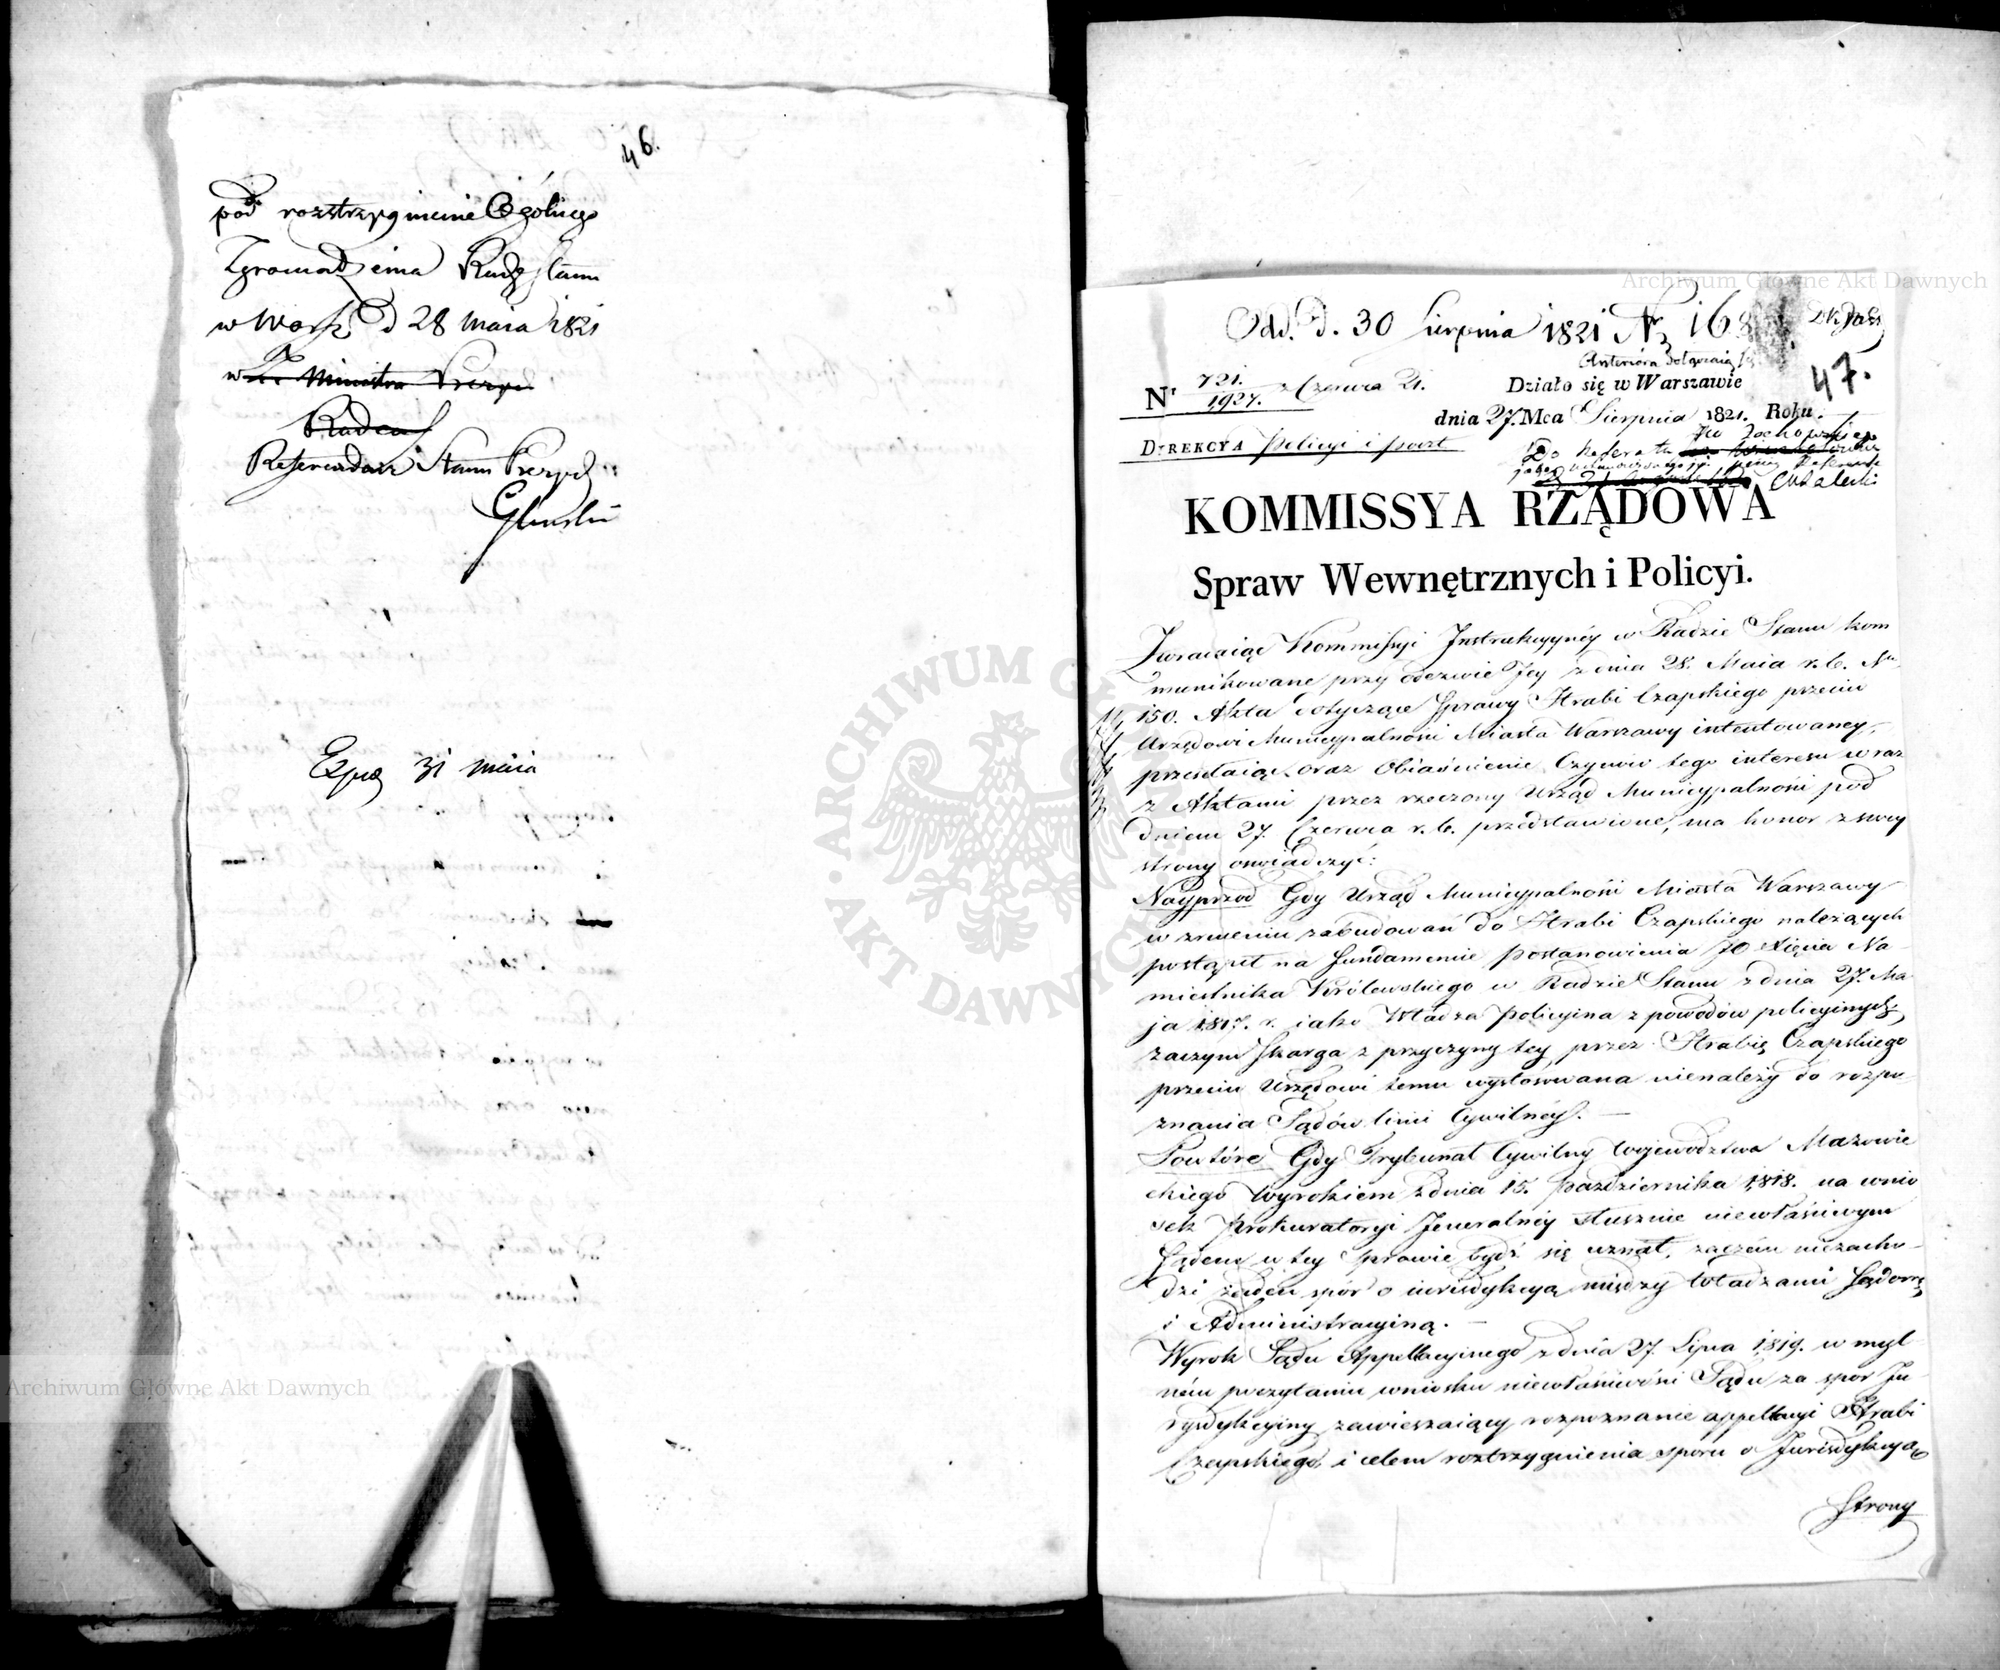 46.
pod rozstrzygnienie Ogólnego
Zgromadzenia Rady Stanu
w Warsz. d 28 maia 1821
w Z. Ministra Prezyd
Radca
Referendarz Stanu Prezyd:
Gliński
Exped 31 maia
Odd. d. 30 Sierpnia 1821 Nr 168
47.
Nr 721./1927. z Czerwca 21.
Działo się w Warszawie
dnia 27. Mca Sierpnia 1821. Roku.
DYREKCYA Policyi i poczt
Do Referatu
KOMMISSYA RZĄDOWA
Spraw Wewnętrznych i Policyi.
Zwracaiąc Kommissyi Instrukcyyney w Radzie Stanu kom
munikowane przy odezwie Jey z dnia 28. Maia r. b. Nr
150. Akta dotyczące Sprawy Hrabi Czapskiego przeciw
Urzędowi Municypalności Miasta Warszawy intentowaney,
przesyłaiąc oraz Obiaśnienie Czynów tego interesu wraz
z Aktami przez rzeczony Urząd Municypalności pod
dniem 27. Czerwca r. b. przedstawione, ma honor z swey
strony oswiadczyć:
Nayprzod Gdy Urząd Municypalności Miasta Warszawy
w zniesieniu zabudowań do Hrabi Czapskiego należących
postąpił na fundamencie Postanowienia JO Xięcia Na-
miestnika Królewskiego w Radzie Stanu z dnia 27. Ma
ja 1817. r. iako Władza Policyina z powodów policyinych,
zaczym Skarga z przyczyny tey przez Hrabię Czapskiego
przeciw Urzędowi temu wystosowana nienależy do rozpo-
znania Sądów linii Cywilney. —
Powtóre Gdy Trybunał Cywilny Województwa Mazowie
ckiego Wyrokiem z dnia 15. Października 1818. na wnio
sek Prokuratoryi Jeneralney słusznie niewłaściwym
Sądem w tey Sprawie bydź się uznał, zaczém niezacho-
dzi żaden spór o iurisdykcyą między Władzami Sądową
i Administracyiną. —
Wyrok Sądu Appellacyinego z dnia 27. Lipca 1819. w myl-
ném poczytaniu wniosku niewłaściwości Sądu za spór Ju-
rysdykcyiny zawieszaiący rozpoznanie appellacyi Hrabi
Czapskiego, i celem roztrzygnienia sporu o Jurisdykcyą
Strony
Archiwum Główne Akt Dawnych
Archiwum Główne Akt Dawnych
ARCHIWUM GŁÓWNE AKT DAWNYCH